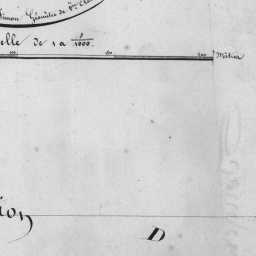 Simon Géomètre de 1re Cla
elle de 1 a 1/1000.
Mètres
ion
D